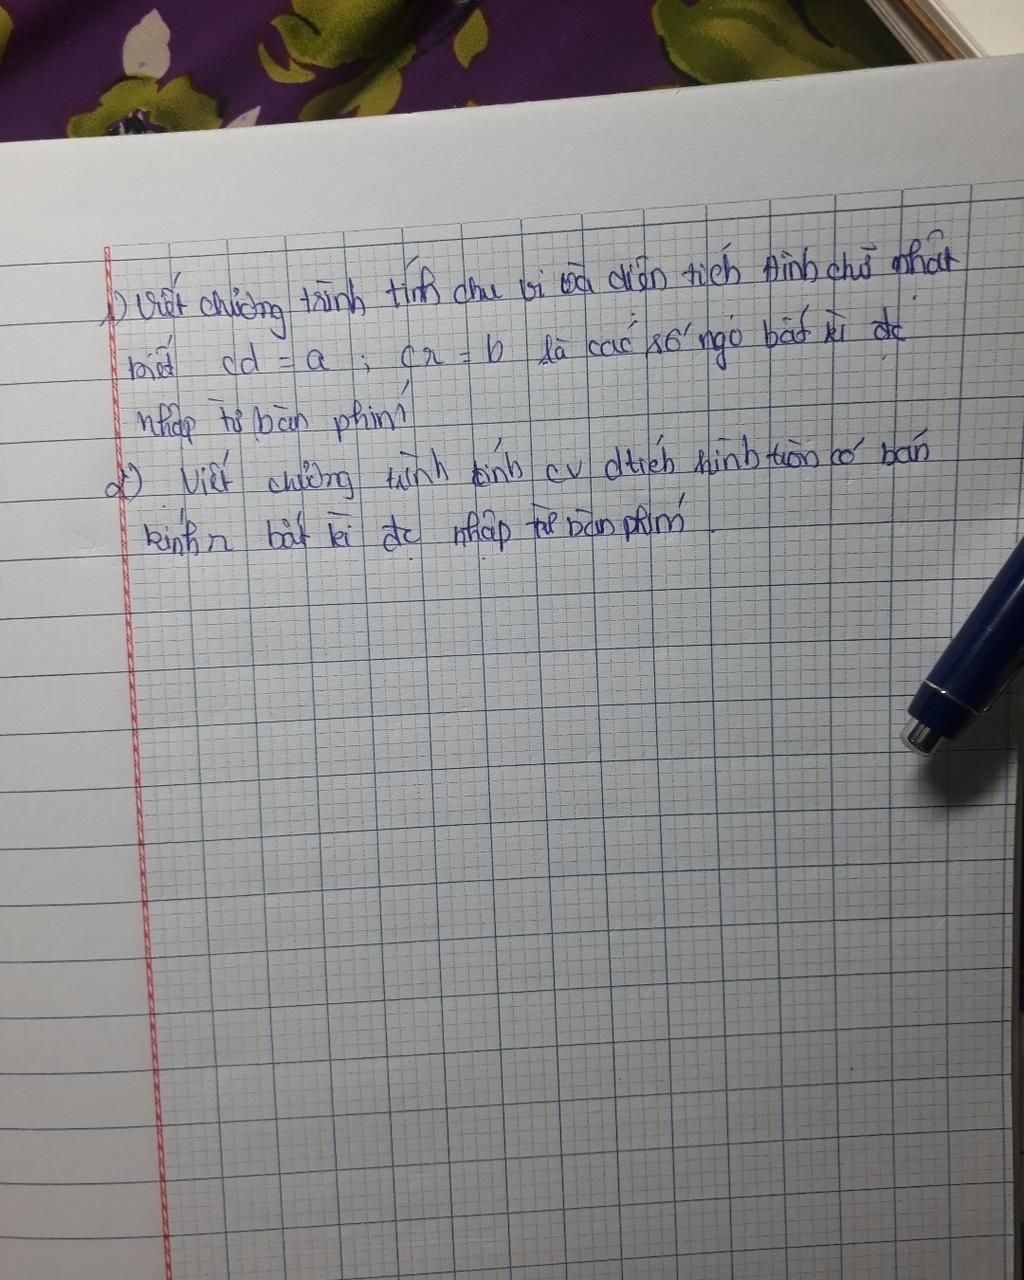 1) Viết chương trình tính chu vi và diện tích hình chữ nhật
biết cd = a ; cr = b là các số ngo bất kì đc
nhập từ bàn phím
2) Viết chương trình tính cv dtích hình tròn có bán
kính r bất kì đc nhập từ bàn phím.